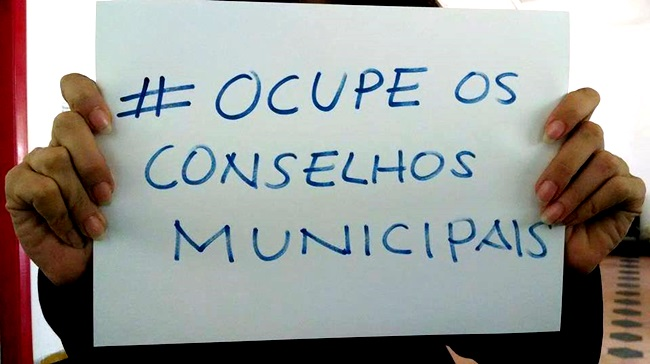 # OCUPE OS
CONSELHOS
MUNICIPAIS